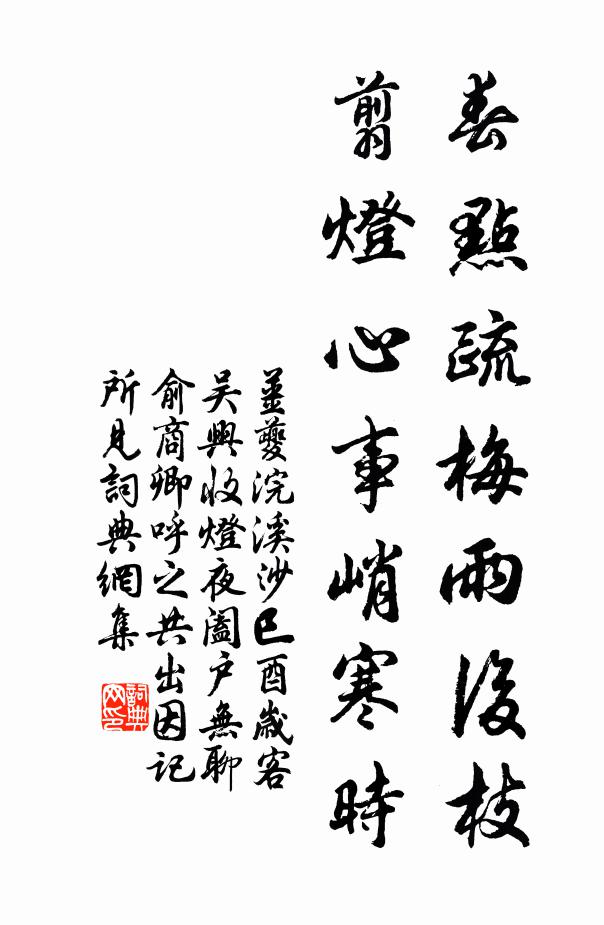 春點疏梅雨後枝
翦燈心事峭寒時
姜夔浣溪沙己酉歲客
吳興收燈夜闔戶無聊
俞商卿呼之共出因記
所見詞典網集
詞典
网印